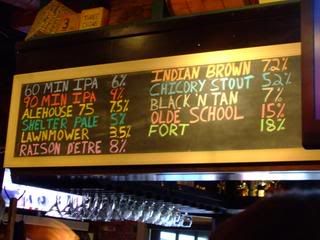 60 MIN IPA 6%
90 MIN IPA 9%
ALEHOUSE 75 7.5%
SHELTER PALE 5%
LAWNMOWER 3.5%
RAISON D'ETRE 8%
INDIAN BROWN 7.2%
CHICORY STOUT 5.2%
BLACK 'N TAN 7%
OLDE SCHOOL 15%
FORT 18%